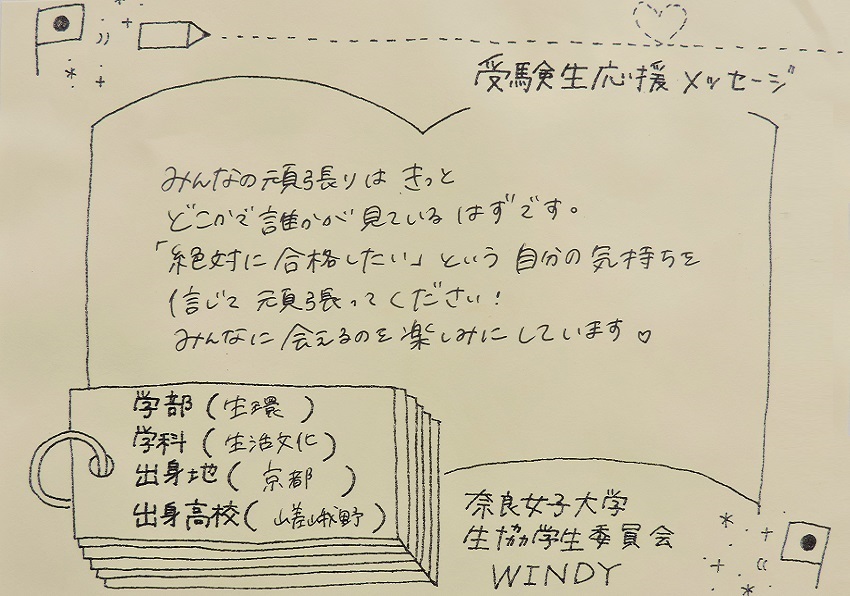 受験生応援メッセージ
みんなの頑張りは きっと
どこかで誰かが見ているはずです。
「絶対に合格したい」という自分の気持ちを
信じて頑張ってください!
みんなに会えるのを楽しみにしています♡
学部(生環)
学科(生活文化)
出身地(京都)
出身高校(嵯峨野)
奈良女子大学
生協学生委員会
WINDY